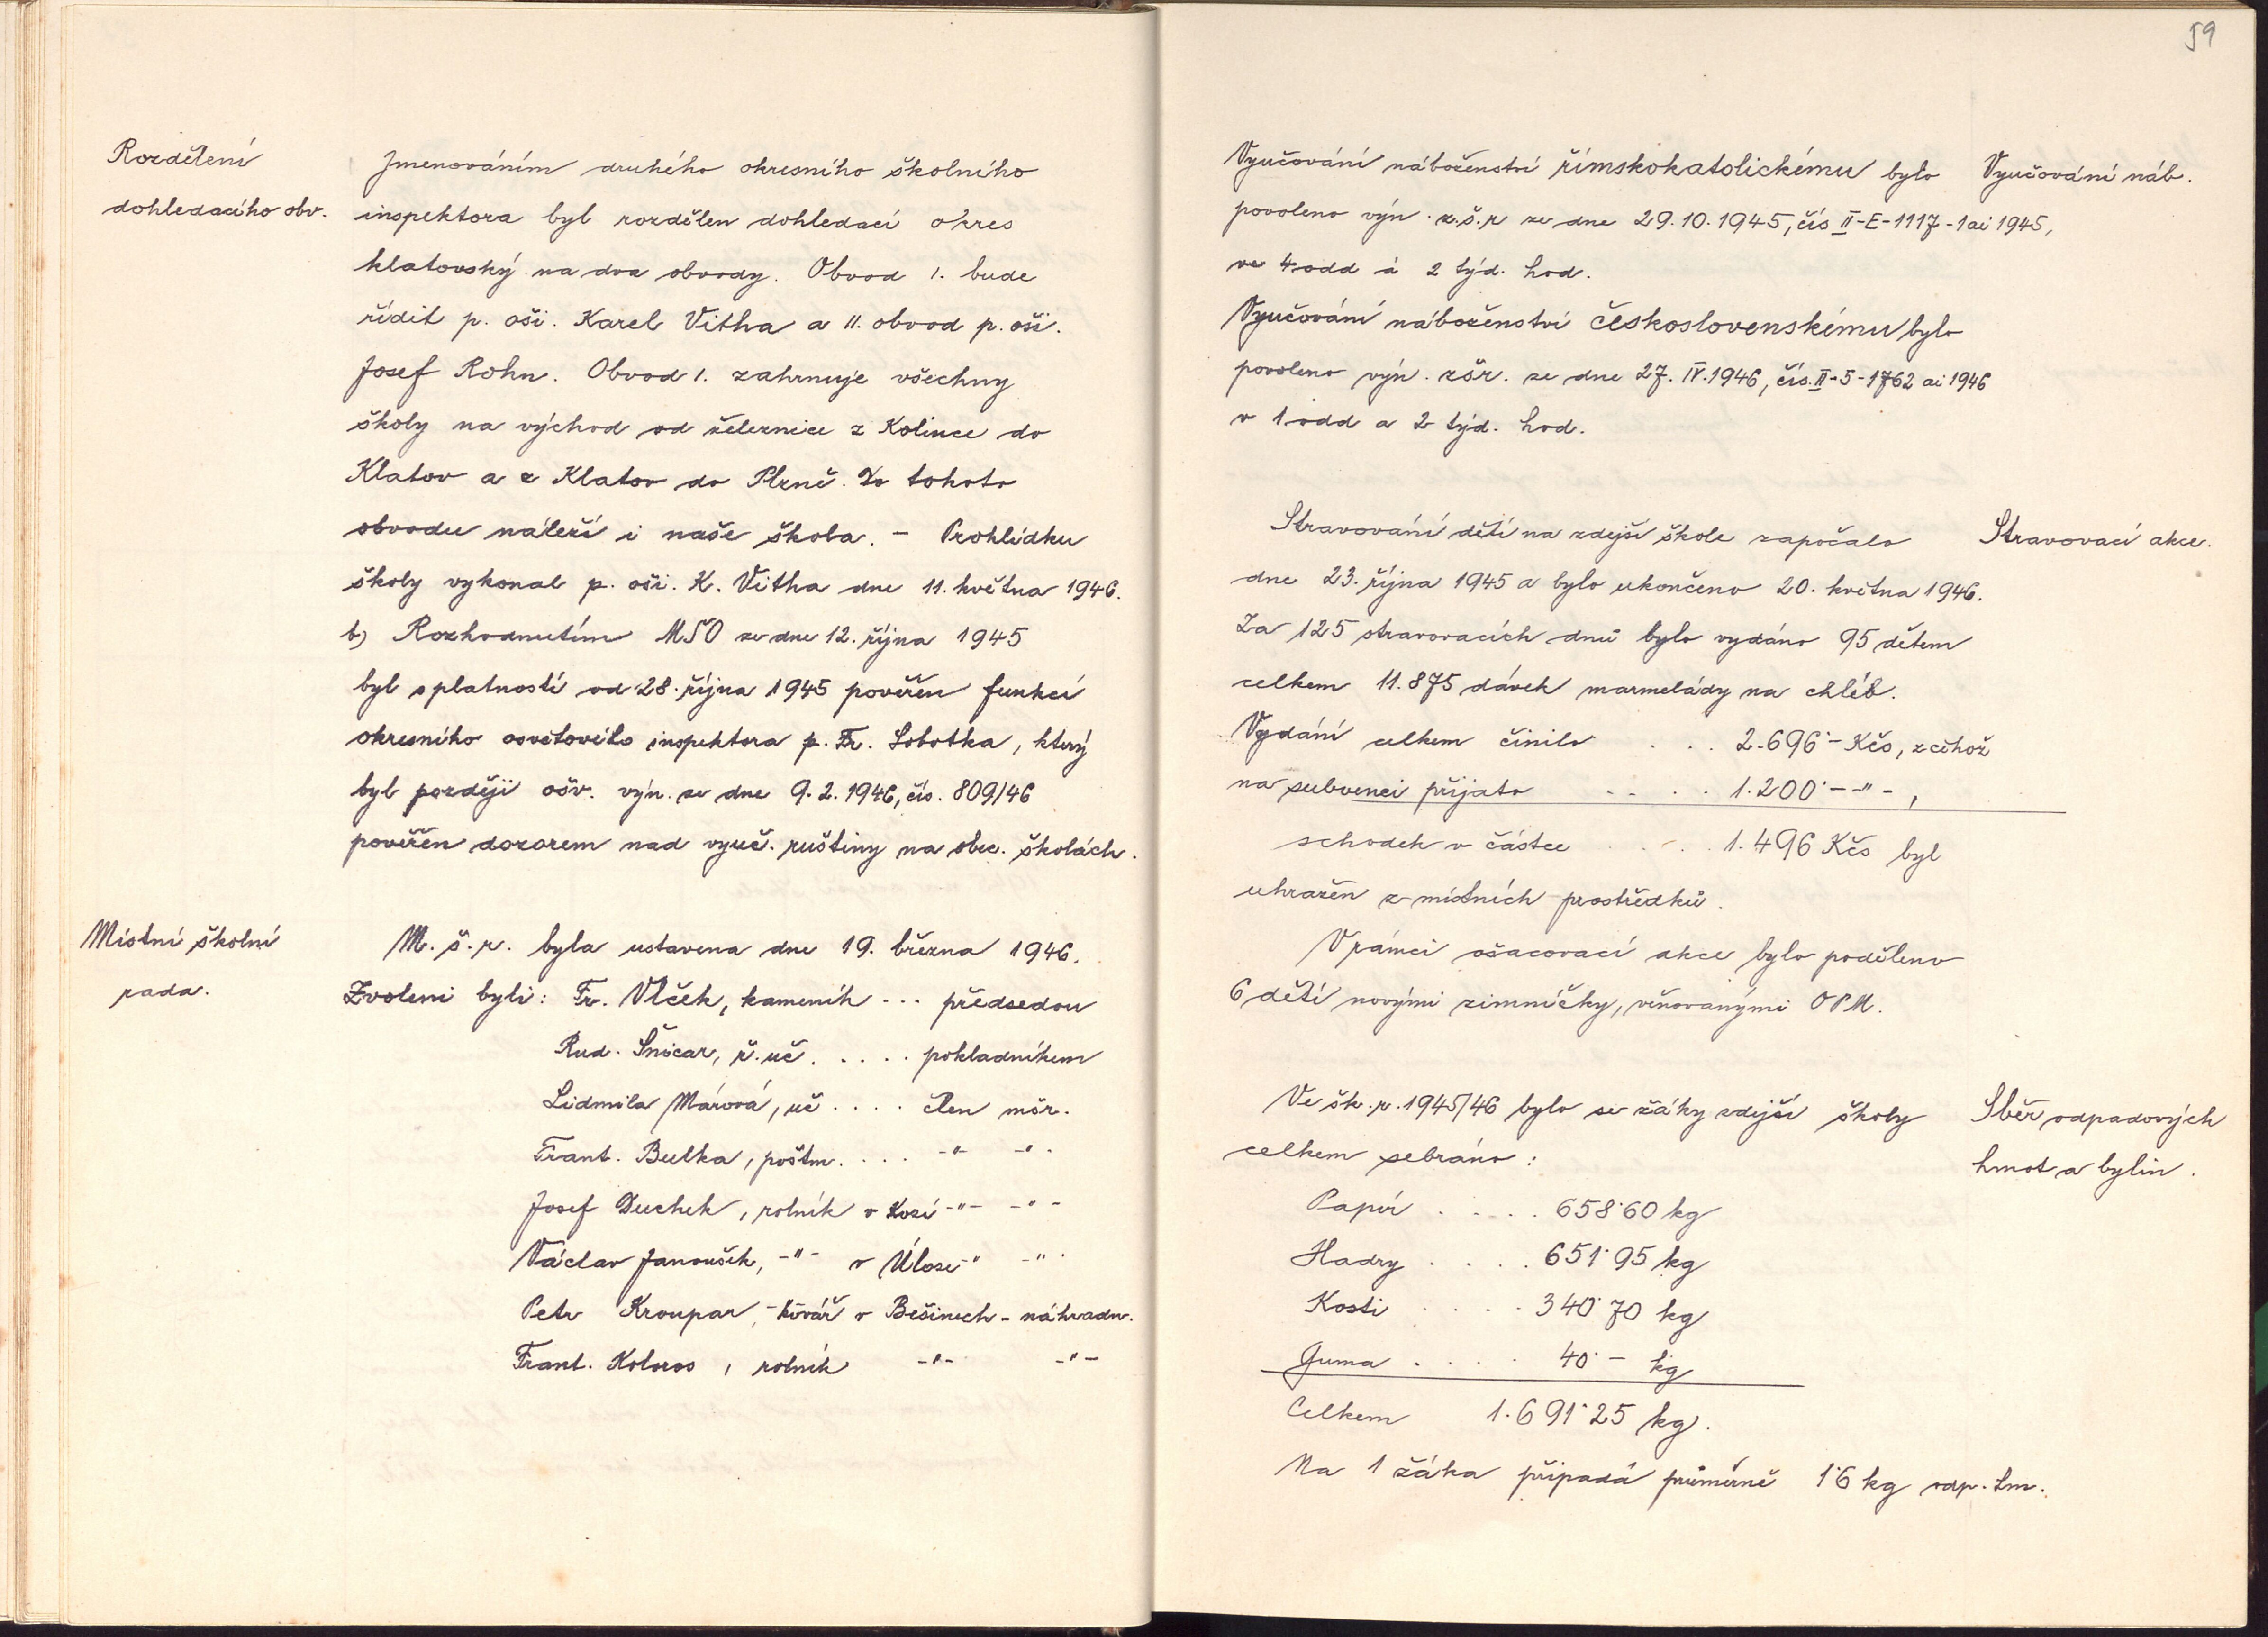 Rozdělení
dohledacího obv.
Jmenováním druhého okresního školního
inspektora byl rozdělen dohledací okres
klatovský na dva obvody. Obvod 1. bude
řídit p. oši. Karel Vitha a II. obvod p. oši.
Josef Rohn. Obvod 1. zahrnuje všechny
školy na východ od železnice z Kolince do
Klatov a z Klatov do Plzně. Do tohoto
obvodu náleží i naše škola. - Prohlídku
školy vykonal p. oši. K. Vitha dne 11. května 1946.
b) Rozhodnutím MŠO ze dne 12. října 1945
byl s platností od 28. října 1945 pověřen funkcí
okresního osvětového inspektora p. Fr. Sobotka, který
byl později ošv. výn. ze dne 9. 2. 1946, čís. 809/46
pověřen dozorem nad vyuč. ruštiny na obec. školách.
Místní školní
rada.
M. š. r. byla ustavena dne 19. března 1946.
Zvoleni byli: Fr. Vlček, kameník ... předsedou
Rud. Šnicar, ř. uč. .... pokladníkem
Lidmila Márová, uč .... člen mšr.
Frant. Bulka, poštm. ... -"- -"-
Josef Duchek, rolník v Kozí -"- -"-
Václav Janoušek, -"- v Úloze -" -"
Petr Kroupar, - kovář v Bešinech - náhradn.
Frant. Koloros, rolník -"- -"-
59
Vyučování náboženství římskokatolickému bylo
povoleno výn. z. š. r ze dne 29. 10. 1945, čís II-E-1117-1ai 1945,
ve 4 odd á 2 týd. hod.
Vyučování náboženství československému bylo
povoleno výn. zšr. ze dne 27. IV. 1946, čís. II-5-1762 ai 1946
v 1 odd a 2 týd. hod.
Vyučování náb.
Stravování dětí na zdejší škole započalo
dne 23. října 1945 a bylo ukončeno 20. května 1946.
Za 125 stravovacích dnů bylo vydáno 95 dětem
celkem 11.875 dávek marmelády na chléb.
Vydání celkem činilo ... 2.696·- Kčs, z čehož
na subvenci přijato .... 1.200·- -"-,
schodek v částce .... 1.496 Kčs byl
uhražen z místních prostředků.
Stravovací akce.
V rámci ošacovací akce bylo poděleno
6 dětí novými zimníčky, věnovanými OPM.
Ve šk. r. 1945/46 bylo se žáky zdejší školy
celkem sebráno:
Sběr odpadových
hmot a bylin.
Papír .... 658·60 kg
Hadry .... 651·95 kg
Kosti .... 340·70 kg
Guma .... 40·- kg
Celkem 1.691·25 kg.
Na 1 žáka připadá průměrně 1·6 kg odp. hm.